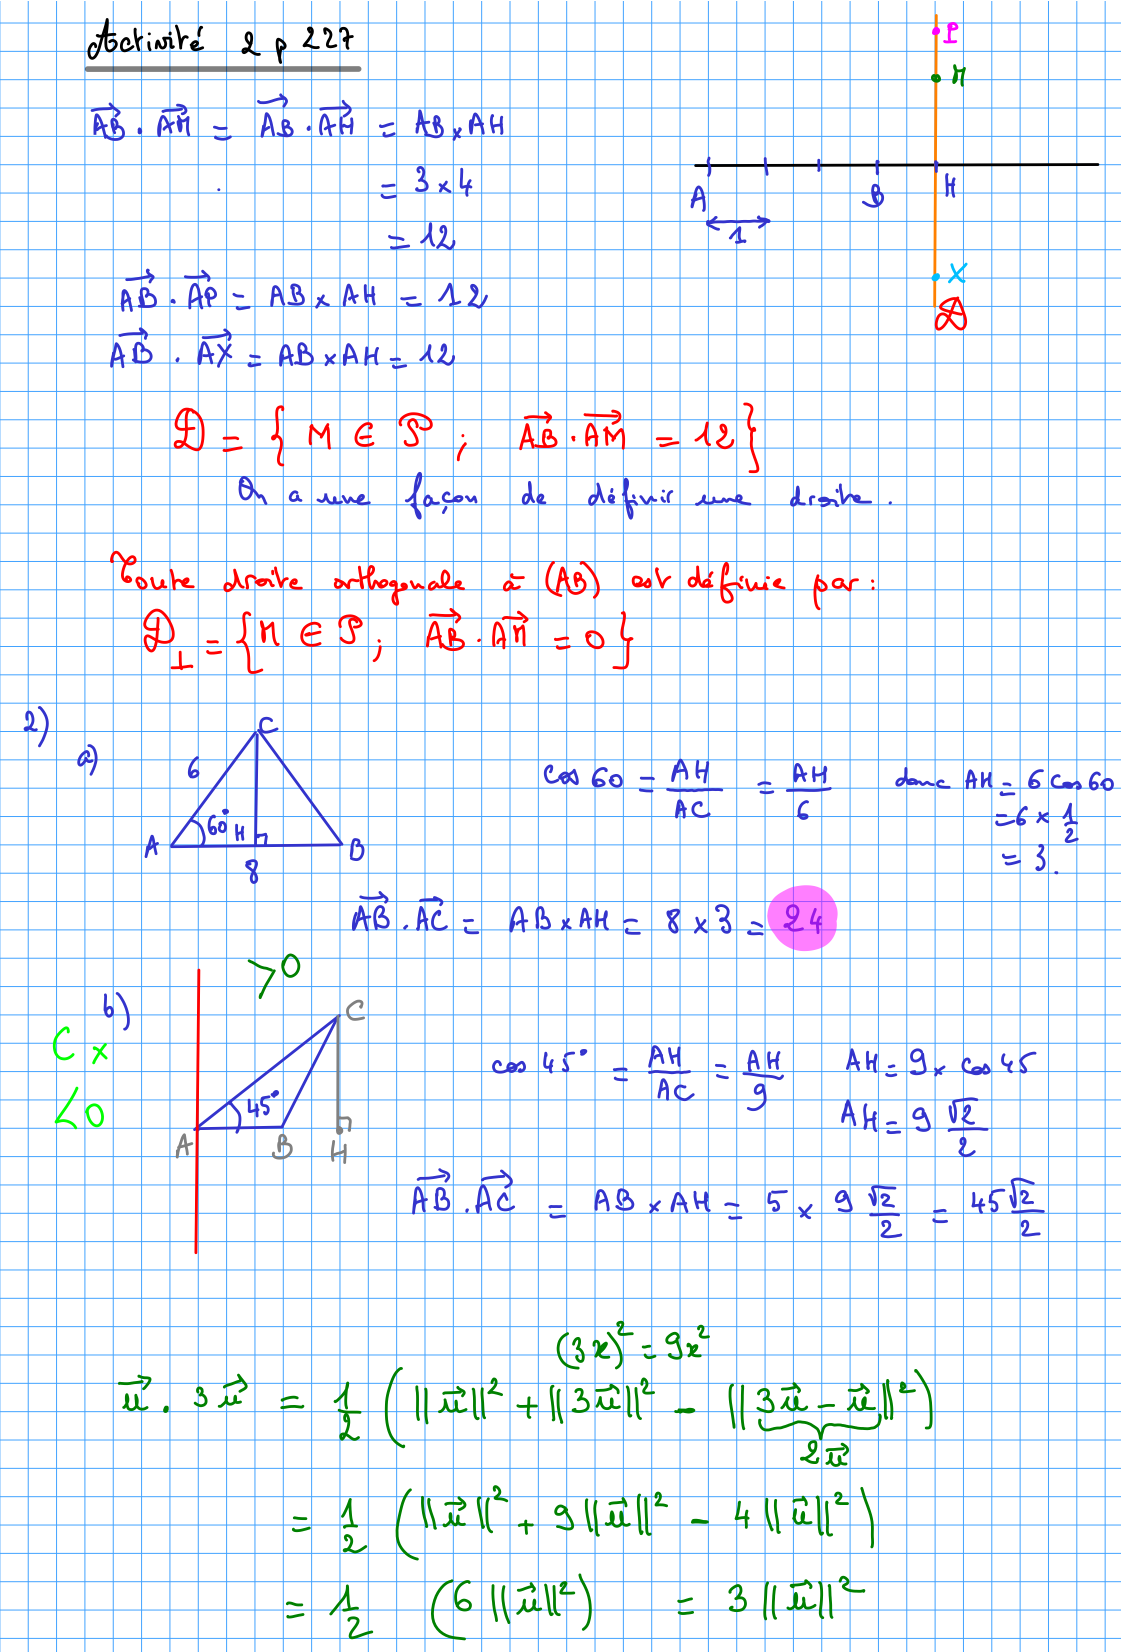 Activité 2 p 227
P
M
A B H
1
X
D
AB⃗ . AM⃗ = AB⃗ . AH⃗ = AB × AH
= 3 × 4
= 12
AB⃗ . AP⃗ = AB × AH = 12
AB⃗ . AX⃗ = AB × AH = 12
D = { M ∈ P ; AB⃗ . AM⃗ = 12 }
On a une façon de définir une droite .
Toute droite orthogonale à (AB) est définie par :
D⊥ = { M ∈ P ; AB⃗ . AM⃗ = 0 }
2)
a)
C
6
60° H
A B
8
cos 60 = AH/AC = AH/6 donc AH = 6 cos 60
= 6 × 1/2
= 3.
AB⃗ . AC⃗ = AB × AH = 8 × 3 = 24
>0
b)
C ×
<0
C
45°
A B H
cos 45° = AH/AC = AH/9 AH = 9 × cos 45
AH = 9 √2/2
AB⃗ . AC⃗ = AB × AH = 5 × 9 √2/2 = 45 √2/2
(3x)² = 9x²
u⃗ . 3u⃗ = 1/2 ( ||u⃗||² + ||3u⃗||² - ||3u⃗ - u⃗||² )
2u⃗
= 1/2 ( ||u⃗||² + 9||u⃗||² - 4||u⃗||² )
= 1/2 (6||u⃗||²) = 3||u⃗||²